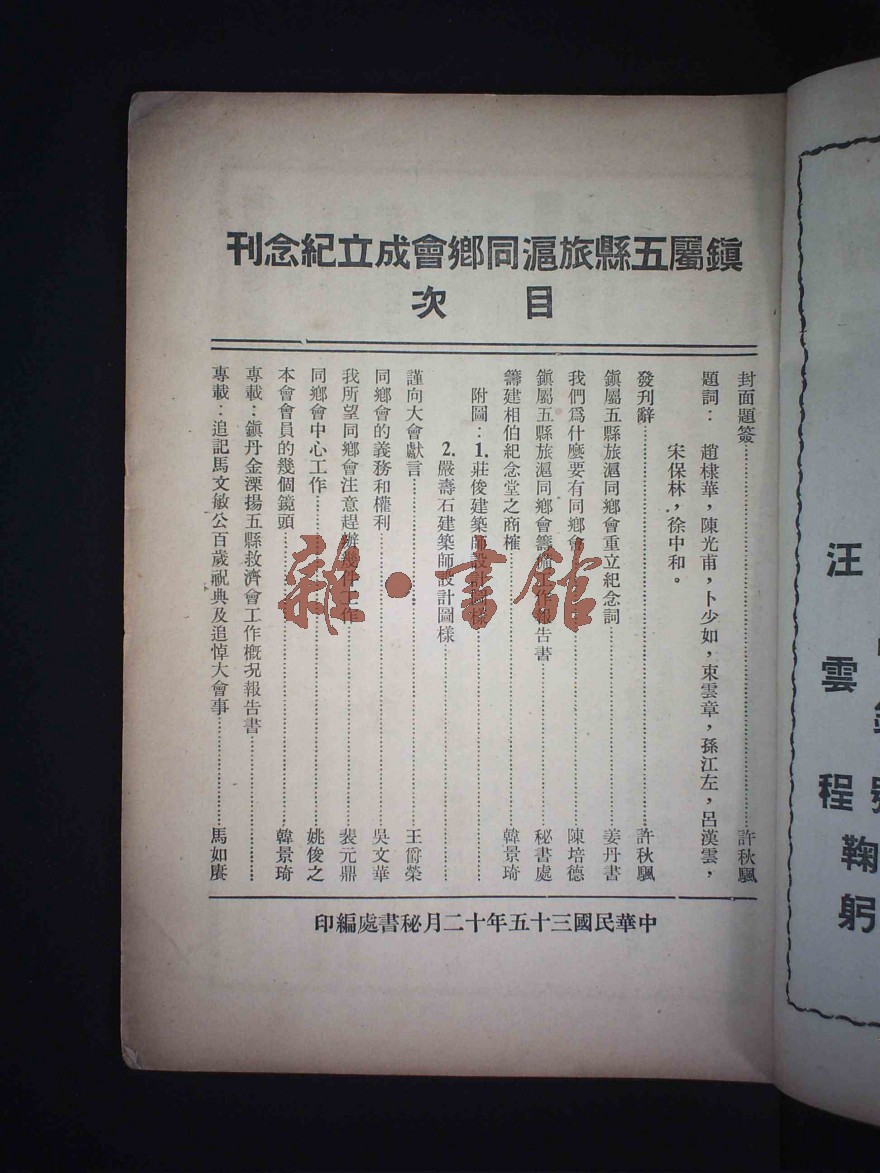 鎭屬五縣旅滬同鄉會成立紀念刊
目次
封面題簽……許秋颿
題詞：趙棣華，陳光甫，卜少如，束雲章，孫江左，呂漢雲，
宋保林，徐中和。
發刊辭……許秋颿
鎭屬五縣旅滬同鄉會重立紀念詞……姜丹書
我們爲什麼要有同鄉會……陳培德
鎭屬五縣旅滬同鄉會籌備工作報告書……秘書處
籌建相伯紀念堂之商榷……韓景琦
附圖：1.莊俊建築師設計圖樣……
2.嚴壽石建築師設計圖樣
謹向大會獻言……王爵榮
同鄉會的義務和權利……吳文華
我所望同鄉會注意趕辦幾件工作……裴元鼎
同鄉會中心工作……姚俊之
本會會員的幾個鏡頭……韓景琦
專載：鎭丹金溧揚五縣救濟會工作概況報告書……
專載：追記馬文敏公百歲祝典及追悼大會事……馬如賡
中華民國三十五年十二月秘書處編印
汪雲程
鞠躬
雜·書館